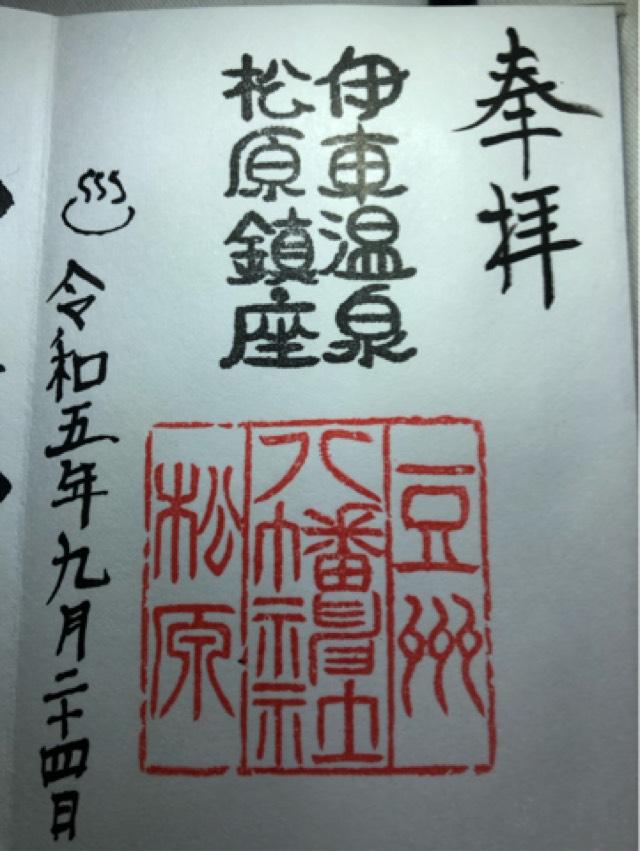 奉拝
伊東温泉
松原鎮座
豆州
八幡神社
松原
令和五年九月二十四日